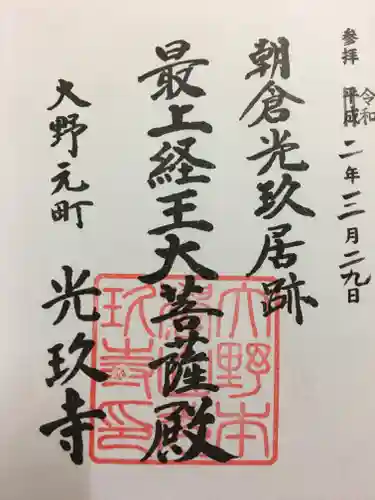 参拝 令和 平成 二年三月二九日
朝倉光玖居跡
最上経王大菩薩殿
大野元町
光玖寺